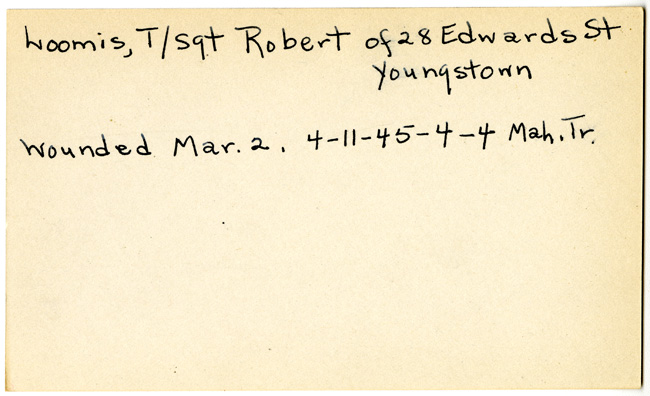 Loomis, T/Sgt Robert of 28 Edwards St
Youngstown
Wounded Mar. 2. 4-11-45-4-4 Mah. Tr.